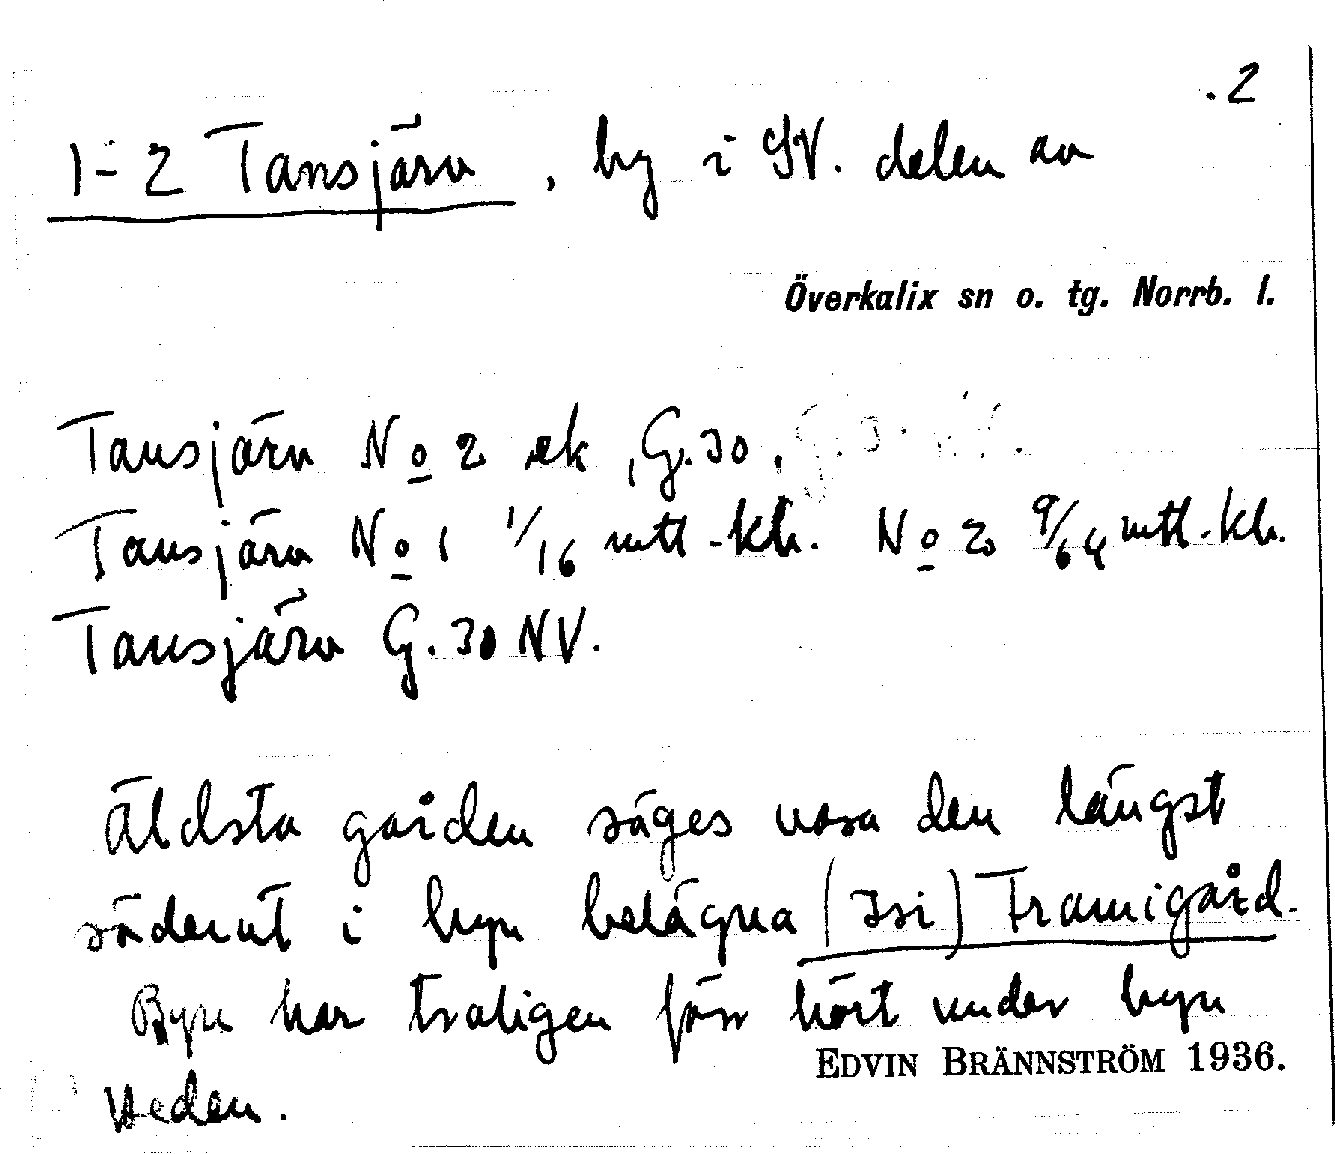 . 2
1-2 Tansjärv , by i SV. delen av
Överkalix sn o. tg. Norrb. l.
Tansjärv No 2 ek , G. 30 .
Tansjärv No 1 1/16 mtl - kh. No 2 9/64 mtl - kh.
Tansjärv G. 30 NV.
Äldsta gården säges vara den längst
söderut i byn belägna (Isi) Framigård.
Byn har troligen förr hört under byn
Heden.
EDVIN BRÄNNSTRÖM 1936.